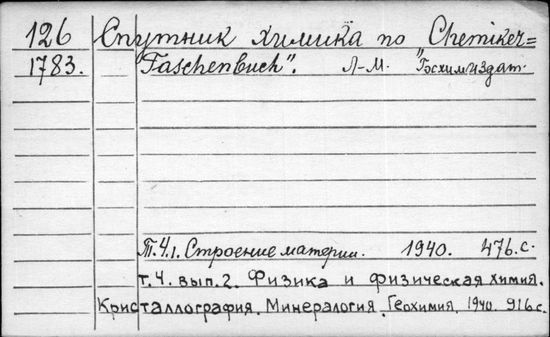 126 Спутник химика по Chemiker=
1783. Taschenbuch". Л-М. "Госхимиздат.
Т.Ч.1. Строение материи. 1940. 476.с.
т.Ч. вып.2. Физика и физическая химия.
Кристаллография. Минералогия. Геохимия. 1940. 916.с.